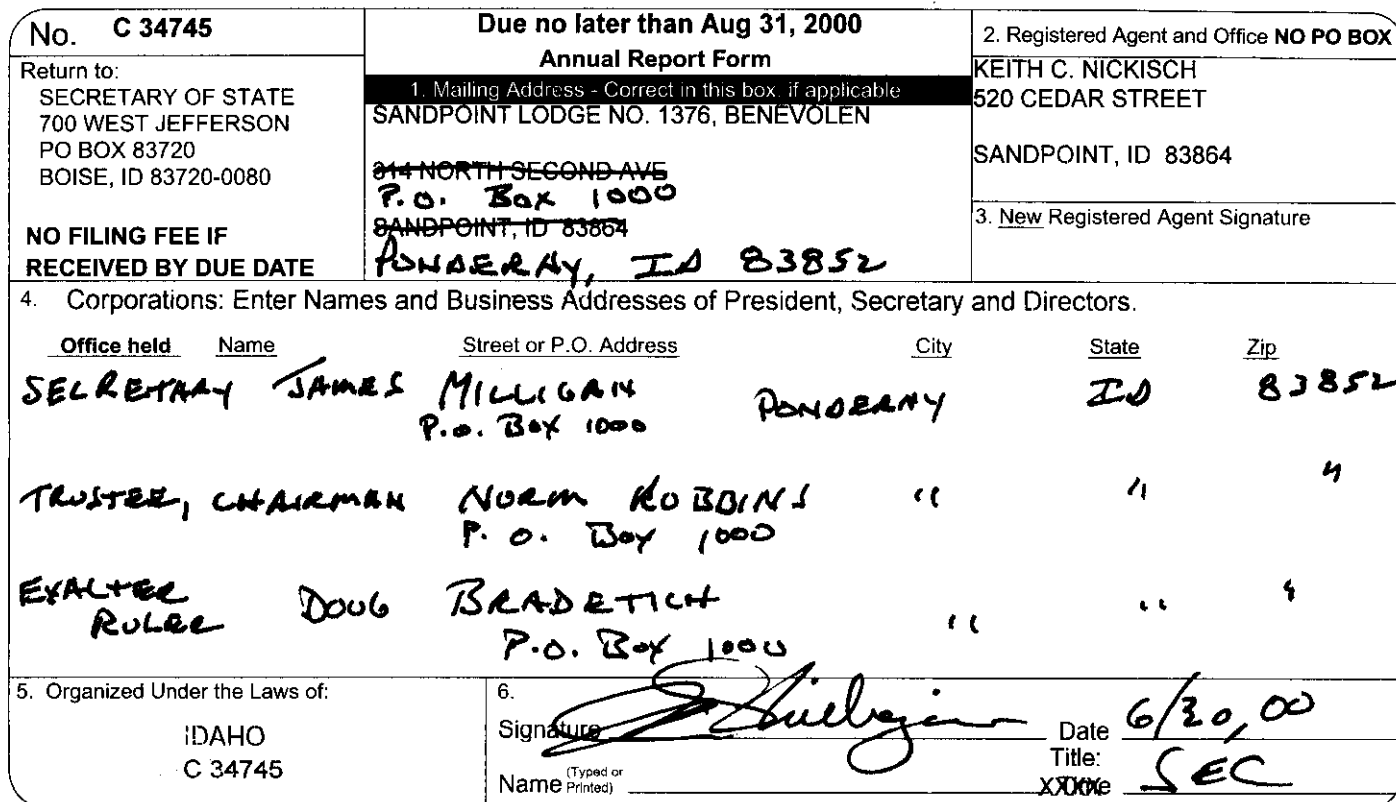 No. C 34745
Return to:
SECRETARY OF STATE
700 WEST JEFFERSON
PO BOX 83720
BOISE, ID 83720-0080
NO FILING FEE IF
RECEIVED BY DUE DATE
Due no later than Aug 31, 2000
Annual Report Form
1. Mailing Address - Correct in this box, if applicable
SANDPOINT LODGE NO. 1376, BENEVOLEN
314 NORTH SECOND AVE
P.O. Box 1000
SANDPOINT, ID 83864
PONDERAY, ID 83852
2. Registered Agent and Office NO PO BOX
KEITH C. NICKISCH
520 CEDAR STREET
SANDPOINT, ID 83864
3. New Registered Agent Signature
4. Corporations: Enter Names and Business Addresses of President, Secretary and Directors.
Office held Name Street or P.O. Address City State Zip
SECRETARY JAMES MILLIGAN PONDERAY ID 83852
P.O. Box 1000
TRUSTEE, CHAIRMAN NORM ROBBINS " " "
P.O. Box 1000
EXALTER DOUG BRADETICH " " "
RULER
P.O. Box 1000
5. Organized Under the Laws of:
IDAHO
C 34745
6.
Signature Date 6/20,00
Name (Typed or Printed) Title: SEC